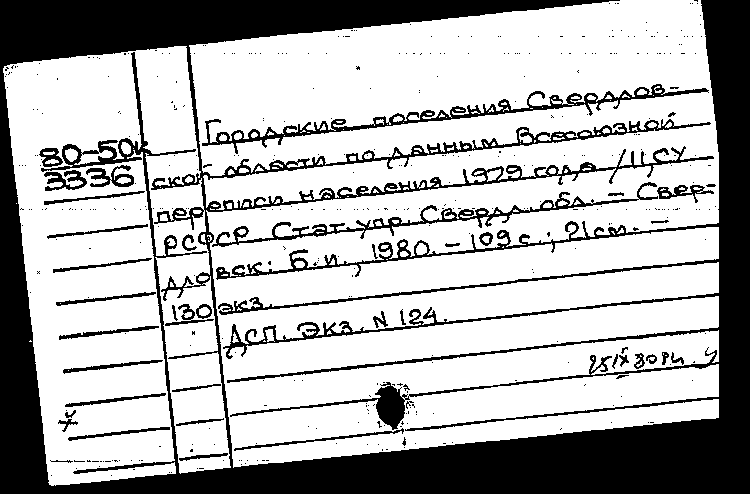 80-50к
3336
Городские поселения Свердлов-
ской области по данным Всесоюзной
переписи населения 1979 года / ЦСУ
РСФСР. Стат. упр. Свердл. обл. - Свер-
дловск: Б.и., 1980. - 109 с.; 21 см. -
130 экз.
ДСП. Экз. N 124.